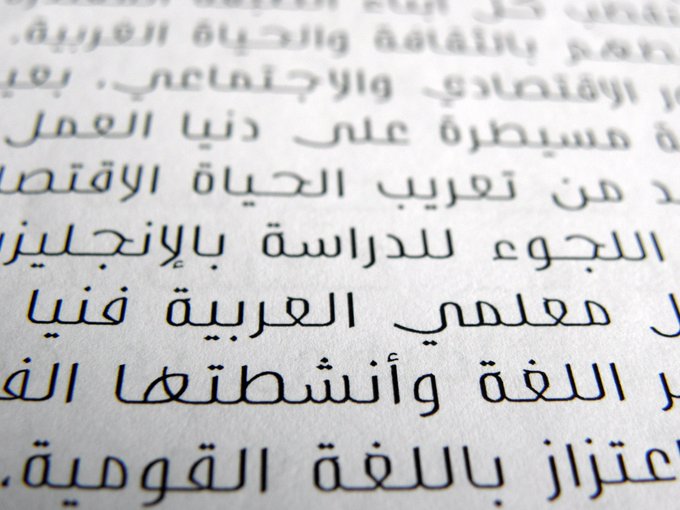 كل أبناء
بالثقافة والحياة الغربية.
الاقتصادي والاجتماعي. بعي
ة مسيطرة على دنيا العمل
د من تعريب الحياة الاقتصا
اللجوء للدراسة بالإنجليزي
ل معلمي العربية فنيا
ر اللغة وأنشطتها الف
اعتزاز باللغة القومية.